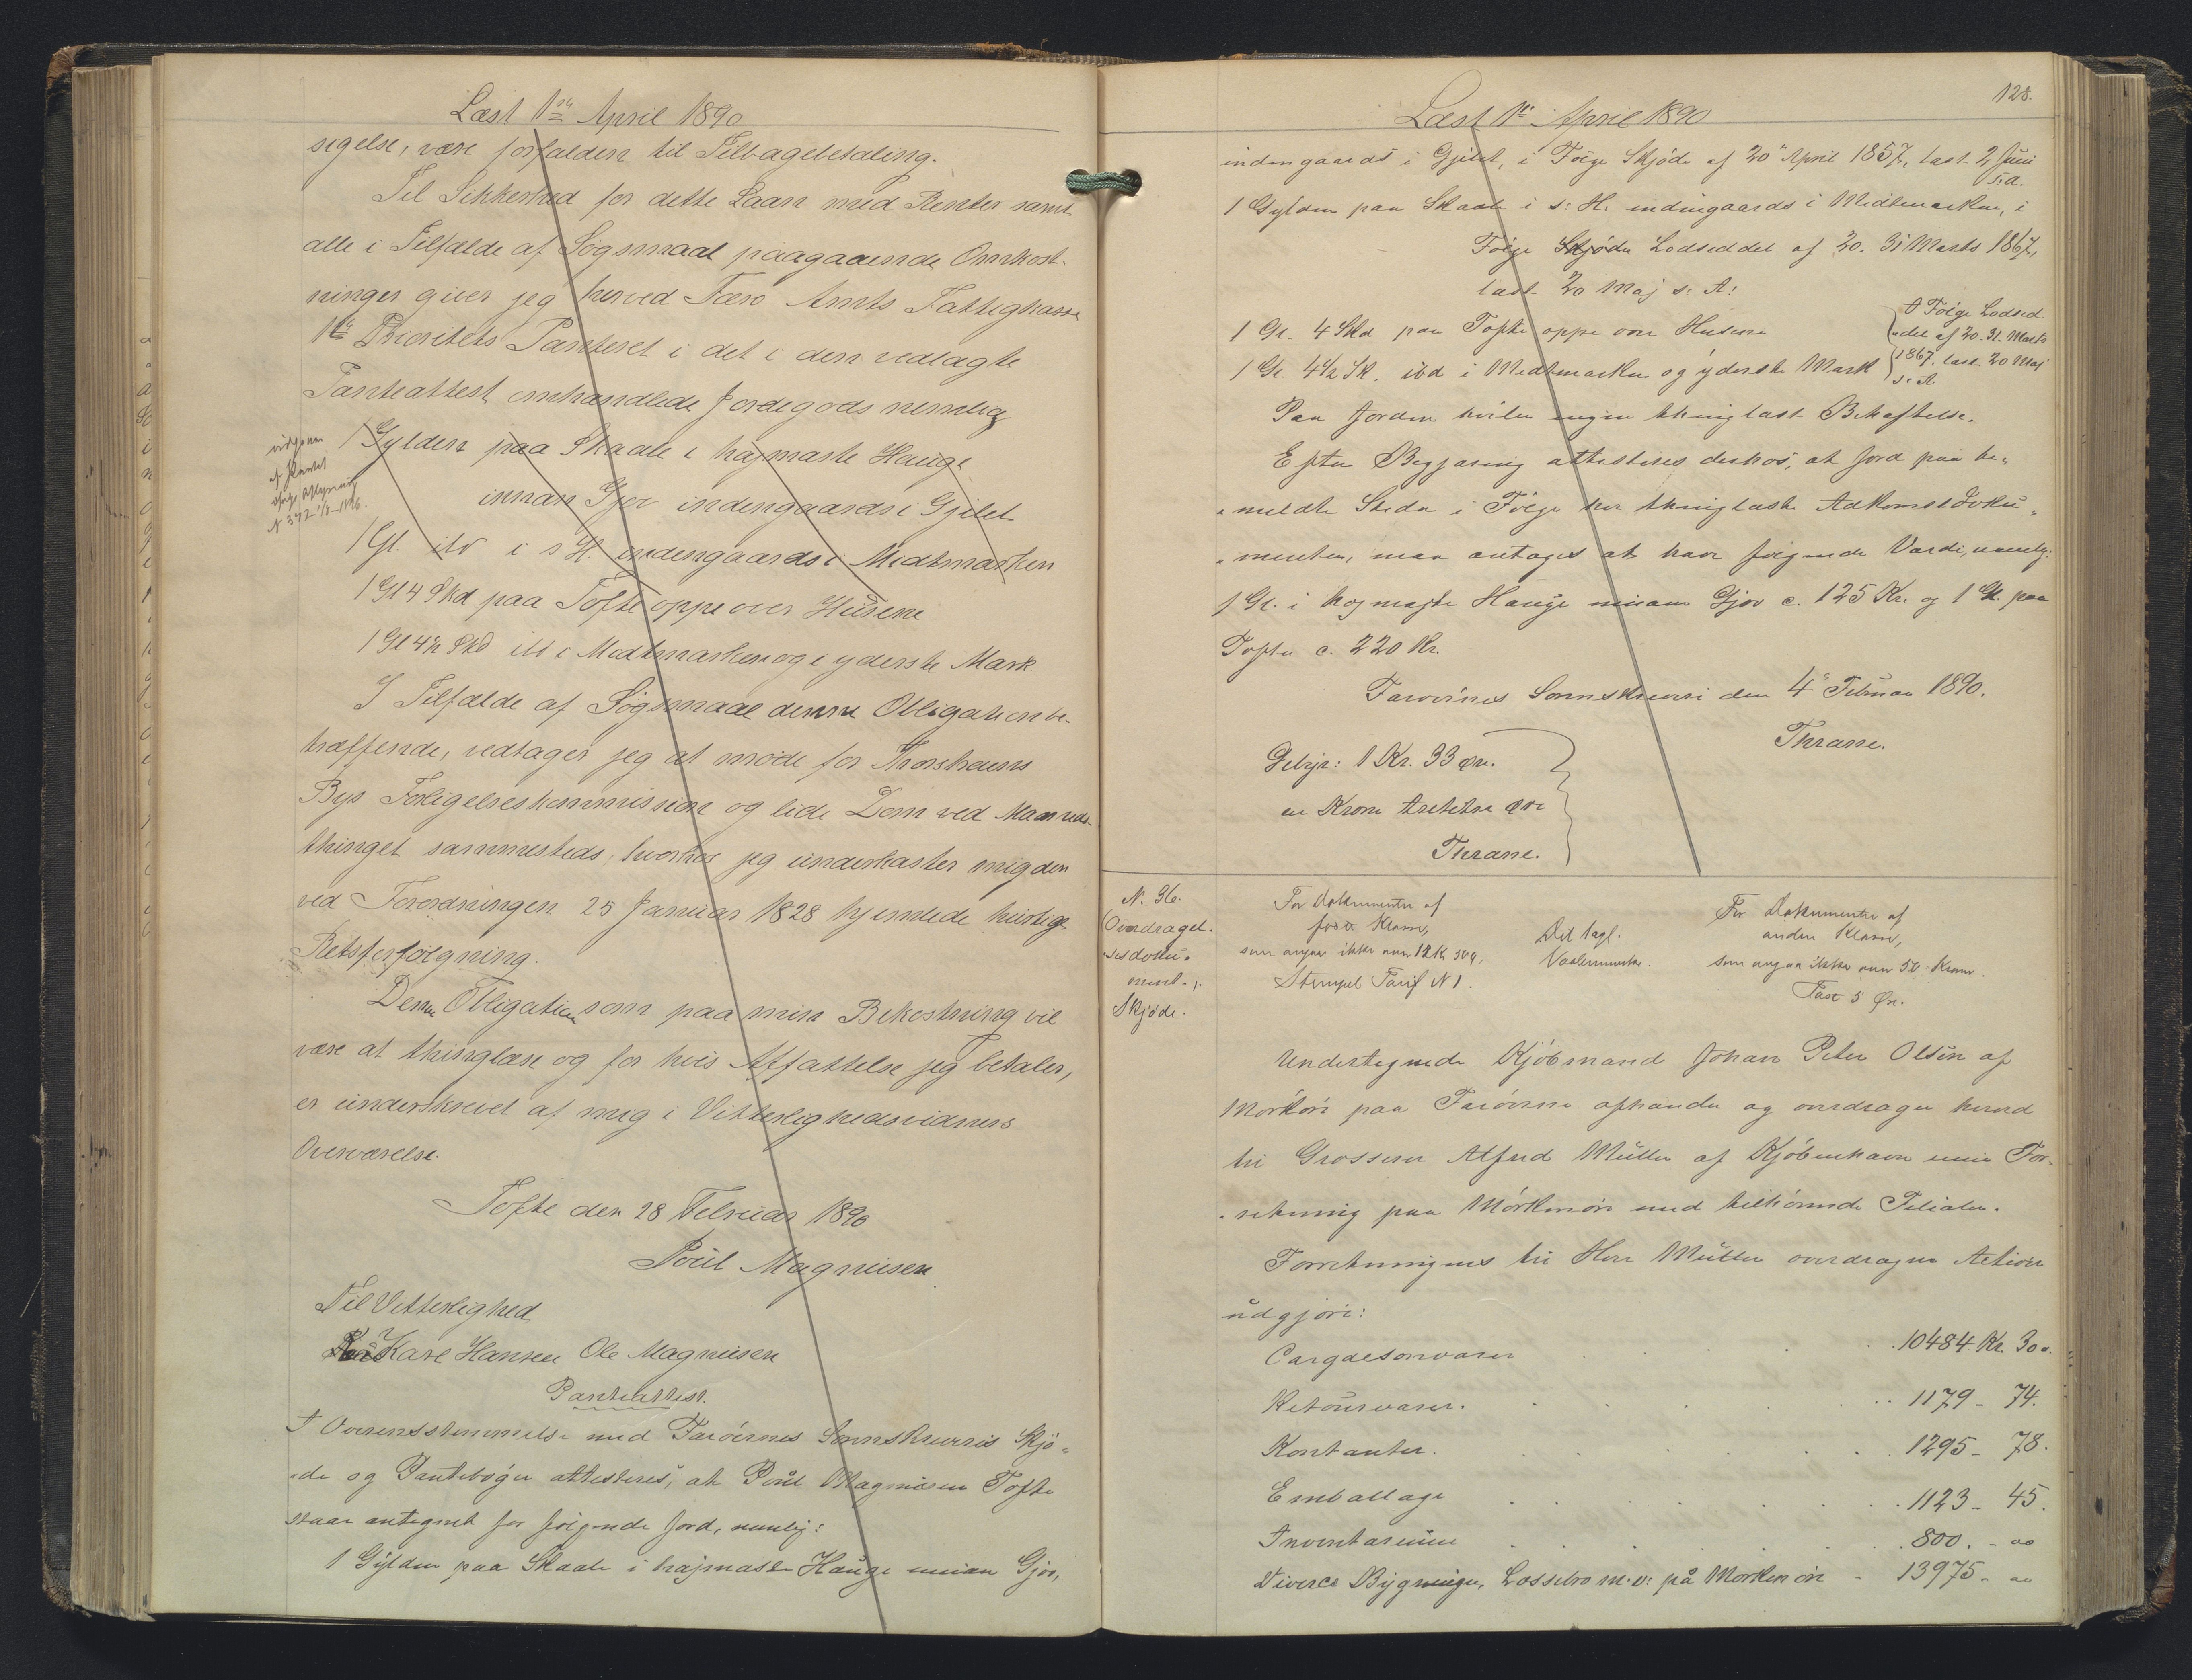 Læst 1ste April 1890
sigelse, være forfalden til Tilbagebetaling.
Til Sikkerhed for dette Laan med Renter samt
alle i Tilfælde af Søgsmaal paagaaende Omkost-
ninger giver jeg herved Færø Amts Fattigkasse
1ste Prioritets Panteret i det i den vedlagte
Panteattest omhandlede Jordegods nemlig
1 Gylden paa Skaale i højmaste Hauge
innan Gjov indengaards i Gjilet
1 Gl. ibd i s. H. indengaards i Midtmarken
1 Gl 4 Skd paa Tofte oppe over Husene
1 Gl 4½ Skd ibd i Midtmarken og i yderste Mark
udgaaet
af Pantet
ifølge Aflysning
N 372
I Tilfælde af Søgsmaal denne Obligation be-
træffende, vedtager jeg at møde for Thorshavns
Bys Forligelseskommission og lide Dom ved Maaneds-
thinget sammesteds, hvorhos jeg underkaster mig den
ved Forordningen 25 Januar 1828 hjemlede hurtige
Retsforfølgning.
Denne Obligation som paa min Bekostning vil
være at thinglæse og for hvis Affattelse jeg betaler,
er underskrevet af mig i Vitterlighedsvidners
Overværelse.
Tofte den 28 Februar 1890
Poul Magnusen
Til Vitterlighed
Kare Hansen Ole Magnusen
Panteattest.
I Overensstemmelse med Færøernes Sorenskriveris Skjø-
de og Pantebøger attesteres, at Poul Magnusen Tofte
staar antegnet for følgende Jord, nemlig:
1 Gylden paa Skaale i højmaste Hauge innan Gjov,
128.
Læst 1ste April 1890
indengaards i Gjilet, i Følge Skjøde af 20de April 1857, læst 2 Juni
s. A.
1 Gylden paa Skaale i s: H. indengaards i Midtmarken, i
Følge Skjøde Lodseddel af 20. 31 Marts 1867,
læst 20 Maj s: A:
1 Gl. 4 Skd paa Tofte oppe over Husene
1 Gl. 4½ Sk. ibd i Midtmarken og yderste Mark
I Følge Lodsed-
del af 20. 31. Marts
1867, læst 20 Maj
s: A.
Paa Jorden hviler ingen thinglæst Behæftelse.
Efter Begjæring attesteres derhos, at Jord paa be-
meldte Steder i Følge her thinglæste Adkomstdoku-
menter, maa antages at have følgende Værdi, nemlig:
1 Gl. i højmaste Hauge innan Gjov c. 125 Kr. og 1 Gl. paa
Tofte c. 220 Kr.
Færøernes Sorenskriveri den 4de Februar 1890.
Thrane.
Gebyr: 1 Kr. 33 Øre.
en Krone tretitre Øre
Thrane.
N. 36.
Overdragel-
sesdoku-
ment
Skjøde.
For Dokumenter af
første Klasse,
som angaa ikke over 12 K 50 Ø.
Stempel Tarif N 1.
Det kgl.
Vaabenmærke.
For Dokumenter af
anden Klasse,
som angaa ikke over 50 Kroner.
Taxt 5 Øre.
Undertegnede Kjøbmand Johan Peter Olsen af
Morkøre paa Færøerne afhænder og overdrager herved
til Grosserer Alfred Müller af Kjøbenhavn min For-
retning paa Mørkenøre med tilhørende Filialer.
Forretningens til Herr Müller overdragne Activer
udgjøre:
Cargaesonvarer 10484 Kr. 30 ø.
Retourvarer. 1179 - 74.
Kontanter. 1295 - 78.
Emballage 1123 - 45.
Inventarium 800. - oo
Diverse Bygninger, Lossebro m: v: på Morkenøre 13975 - oo